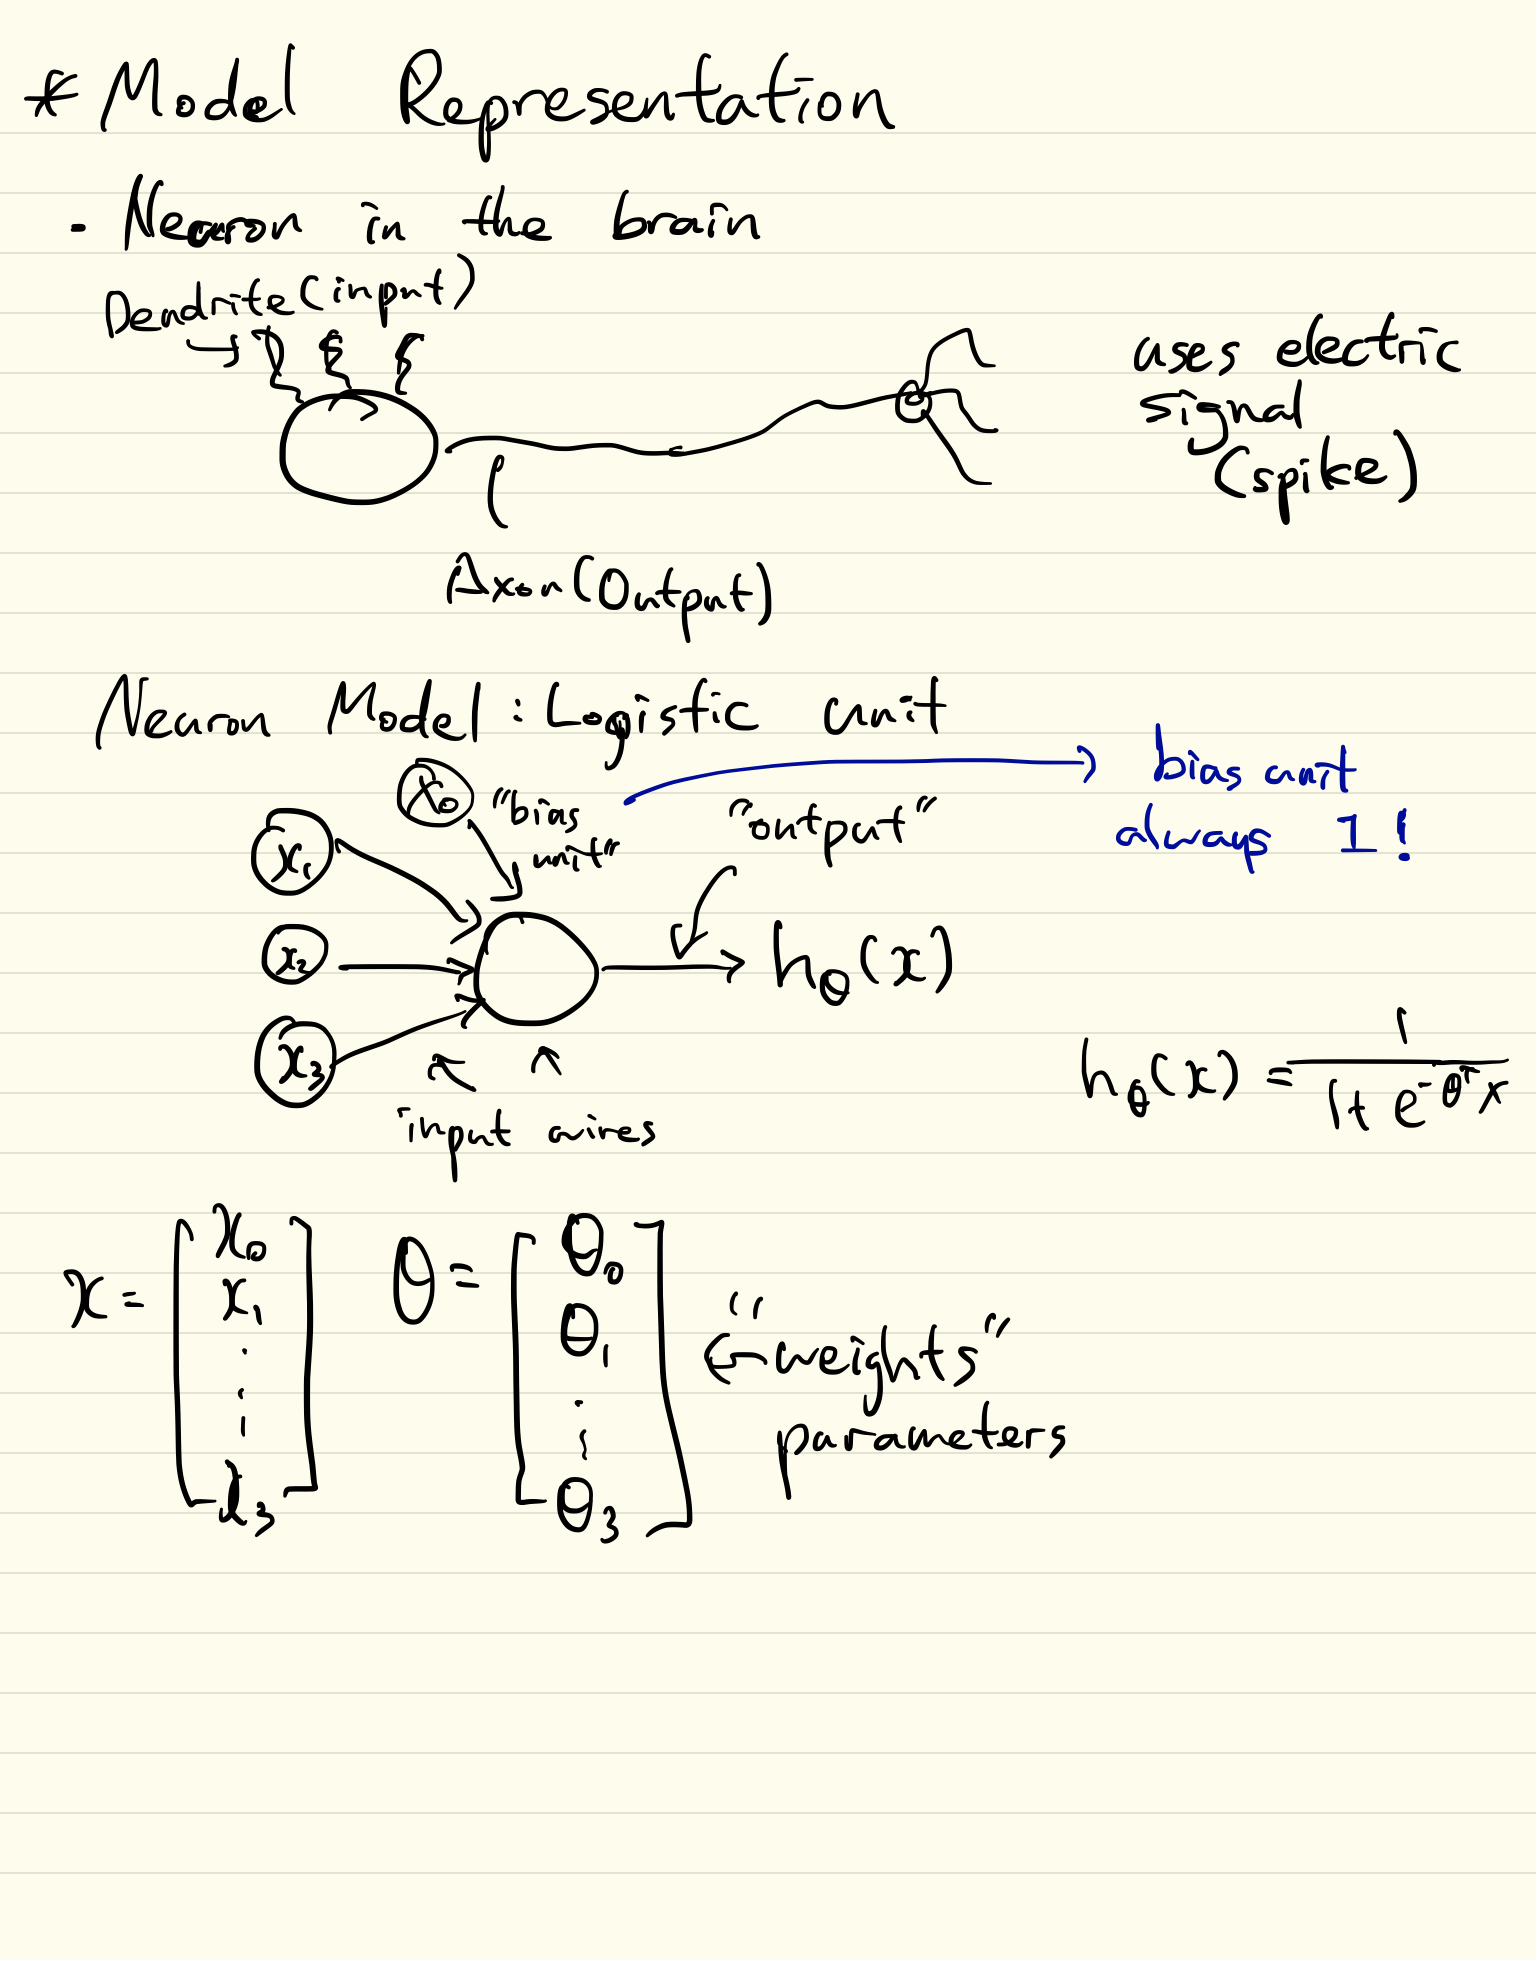 * Model Representation
- Neuron in the brain
Dendrite (input)
uses electric
signal
(spike)
Axon (Output)
Neuron Model : Logistic unit
x₀ "bias
unit"
"output"
bias unit
always 1!
x₁
x₂
x₃
h_θ(x)
input wires
h_θ(x) = 1 / (1 + e^(-θᵀx))
x = [x₀ x₁ ⋮ x₃] θ = [θ₀ θ₁ ⋮ θ₃] ← "weights"
parameters